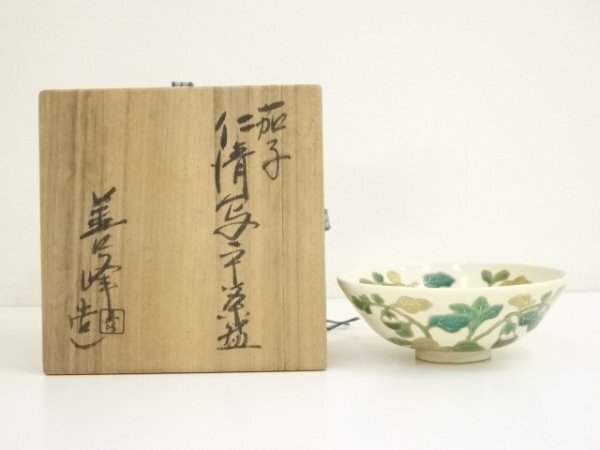 茄子
仁清写平茶碗
善峰造